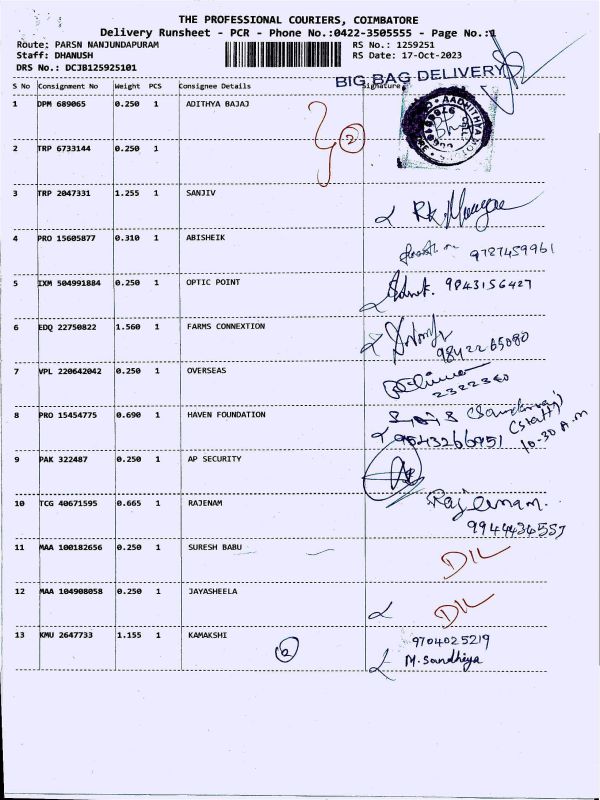 THE PROFESSIONAL COURIERS, COIMBATORE
Delivery Runsheet - PCR - Phone No.:0422-3505555 - Page No.:1
Route: PARSN NANJUNDAPURAM RS No.: 1259251
Staff: DHANUSH RS Date: 17-Oct-2023
DRS No.: DCJB125925101
BIG BAG DELIVERY
S No Consignment No Weight PCS Consignee Details Signature
1 DPM 689065 0.250 1 ADITHYA BAJAJ
2
2 TRP 6733144 0.250 1
3 TRP 2047331 1.255 1 SANJIV
4 PRO 15605877 0.310 1 ABISHEIK 9787459961
5 IXM 504991884 0.250 1 OPTIC POINT 9843156427
6 EDQ 22750822 1.560 1 FARMS CONNEXTION
9842265090
7 VPL 220642042 0.250 1 OVERSEAS
2322360
8 PRO 15454775 0.690 1 HAVEN FOUNDATION
(Staff)
9543266951 10-30 A.m
9 PAK 322487 0.250 1 AP SECURITY
10 TCG 40671595 0.665 1 RAJENAM Rajeenam.
9944436557
11 MAA 100182656 0.250 1 SURESH BABU DIL
12 MAA 104908058 0.250 1 JAYASHEELA DIL
13 KMU 2647733 1.155 1 KAMAKSHI 9704025219
2 M. Sandhiya